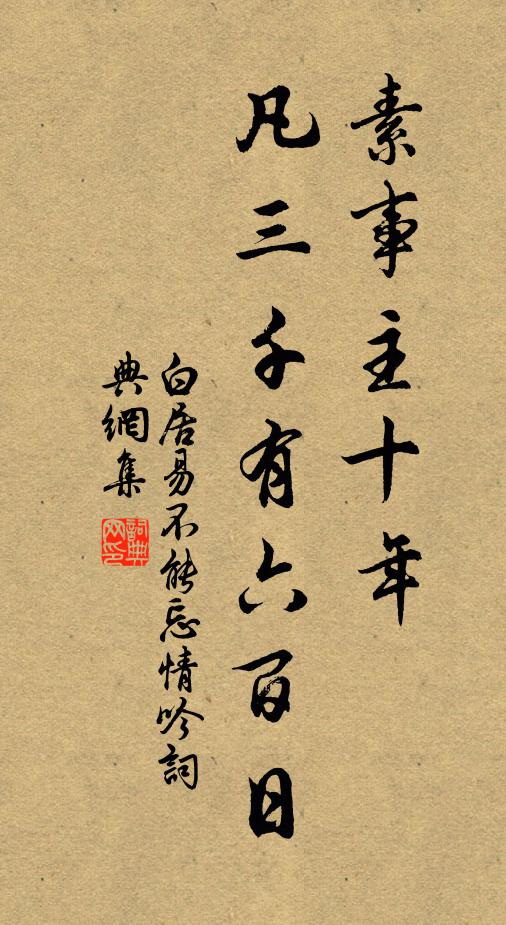 素事主十年
凡三千有六百日
白居易不能忘情吟詞
典網集
詞典網印